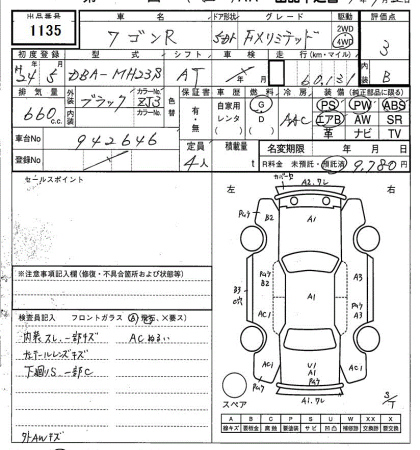 出品番号 車名 ドア形状 グレード 駆動 評価点
1135 ワゴンR 5Dr FXリミテッド 2WD 4WD 3
初度登録 型式 シフト 車検 走行(km・マイル) 内装
H24.5 DBA-MH23S AT 60,131 B
排気量 外装色 カラーNo. 色替 車歴 燃料 冷房 装備(純正部品に限る)
660c.c. ブラック ZJ3 有・無 自家用 レンタ G D AAC PS PW ABS
エアB AW SR
革 ナビ TV
車台No 942646 定員 積載量 名変期限 年 月 日
登録No 4人 t R料金 未預託・預託済 9,780円
セールスポイント 左 右
カバーセ A2.ワレ
Pxg B2 A1
Pxg
※注意事項記入欄(修復・不具合箇所および状態等)
Pxg B2 A1 Pxg A3
B3 A3
検査員記入 フロントガラス
内装スレ、一部キズ ACぬるい
テールレンズキズ
下廻りS、一部C
AC1 U1 A1 Pxg AC1
スペア A1.ワレ S/T
外AWキズ
A B C P S U W XX X
線キズ 要板金 腐蝕 要塗装 サビ 凹凸 補修跡 交換跡 要交換